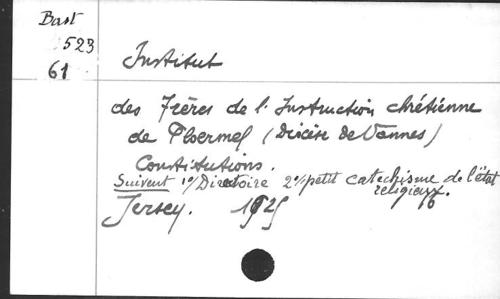 Bast
523
61
Institut
des Frères de l'Instruction chrétienne
de Ploermel (Diocèse de Vannes)
Constitutions.
Suivent 1°/ Directoire 2°/ petit catechisme de l'état
religieux.
Jersey. 1925